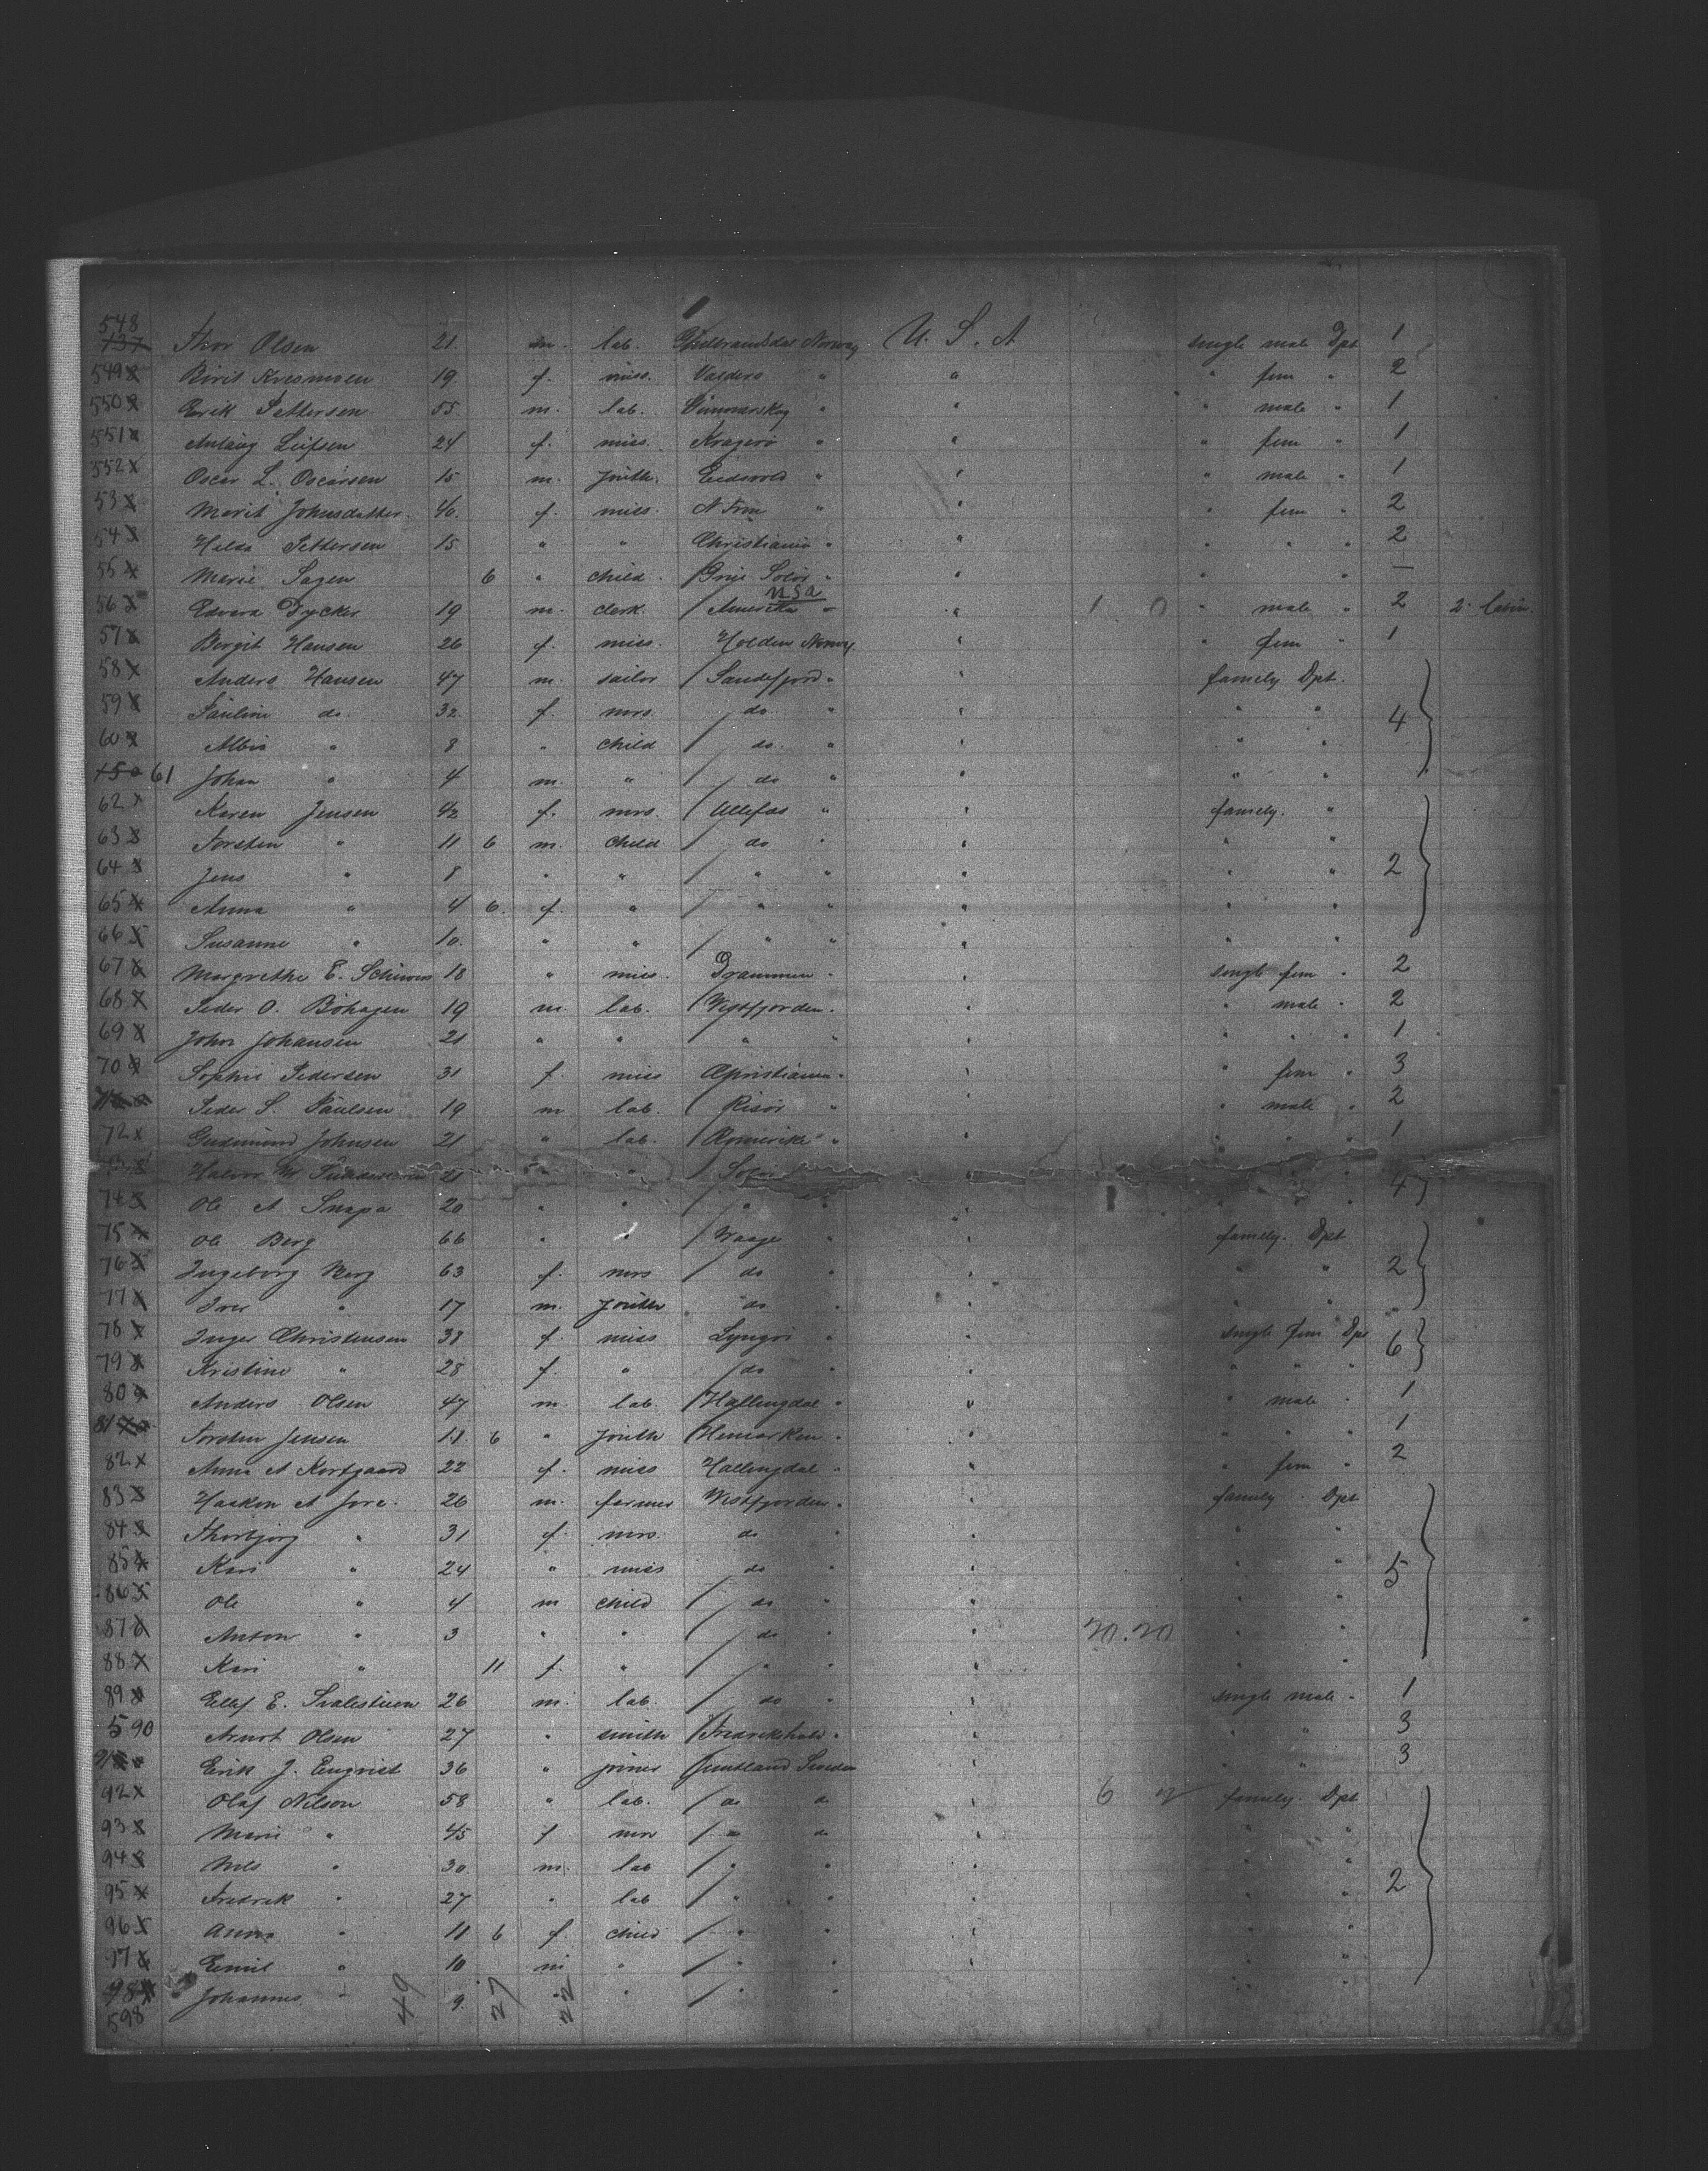 548
137 Thor Olsen 21. m. lab. Gudbrandsdal Norway U. S. A single male Dpt 1
549 Birit 19. f. miss. Valders " " " fem " 2
550 Erik Pettersen 55. m. lab. " " " male " 1
551 Leifsen 24 f. miss. Kragerö " " " fem " 1
552 Oscar L. Oscarsen 15 m. youth. Eidsvold " " " male " 1
53 Marit Johnsdatter. 46. f. miss. N Fron " " " fem " 2
54 Hilda Pettersen 15 " " Christiania " " " " " 2
55 Marie Sagen 6 " child. Solör " " " " —
U S A
56 Edvard Dycker 19 m. clerk. / Amerika " " 1 0 " male " 2 2. Cabin.
57 Bergit Hansen 26 f. miss. Holden Norway. " " fem " 1
58 Anders Hansen 47 m. sailor / Sandefjord " " family Dpt.
59 Pauline do. 32 f. mrs. / do. " " " " 4
60 " 8 " child / do. " " " "
150 61 Johan " 4 m. " / do " " " "
62 Karen Jensen 42 f. mrs. / Ullefos " " family. "
63 Torsten " 11 6 m. child / do " " " "
64 Jens " 8 " " / " " " " " 2
65 Anna " 4 6. f. " / " " " " "
66 Susanne " 10. " " / " " " " "
67 Margrethe E. 18 " miss. Drammen " " single fem " 2
68 Peder O. Böhagen 19 m lab. / Vestfjorden. " " male " 2
69 John Johansen 21 " " / " " " " " " 1
70 Sophie Pedersen 31 f. miss Christiania " " " fem " 3
Peder S. Paulsen 19 m lab. / Risör " " " male " 2
72 Gudmund Johnsen 21 " lab. / Romerike " " " " " 1
Halvor M. 21 " " / Solör " "
74 Ole A 20 " " / " " " " " " 4
75 Ole Berg 66 " " / Vaage " " family. Dpt
76 Ingeborg Berg 63 f. mrs / do " " " " 2
77 Iver " 17 m. youth do " " " "
78 Inger Christensen 38 f. miss Lyngör " " single fem Dpt 6
79 Kristine " 28 f. " / do " " " " "
80 Anders Olsen 47 m. lab. / Hallingdal " " " male " 1
81 Torsten Jensen 11 6 " youth / " " " " " 1
82 Anna A 22 f. miss Hallingdal " " " fem " 2
83 Haakon A Jore. 26 m. farmer Vestfjorden. " family Dpt
84 Thorbjörg " 31 f. mrs. do " " " "
85 Kari " 24 " miss do " " " " 5
86 Ole " 4 m child / do " " " "
87 Anton " 3 " " / do " " 20.20 " "
88 Kari " 11 f. " / " " " " "
89 Ellef E. 26 m. lab. / do " " single male " 1
590 Arnt Olsen 27 " smith / Fredrikshald. " " " 3
Erik J. Enqvist 36 " joiner Jemtland Sweden " " " 3
92 Olaf Nilson 58 " lab. / do do " 6 family. Dpt
93 Marie " 45 f mrs / " do " " "
94 Nils " 30. m. lab / " " " " "
95 Fredrik " 27 " lab / " " " " " 2
96 Anna " 11 6 f child / " " " " "
97 Emil " 10 m " / " " " "
98 Johannes " 9. " " / " " " "
598 49 27 22